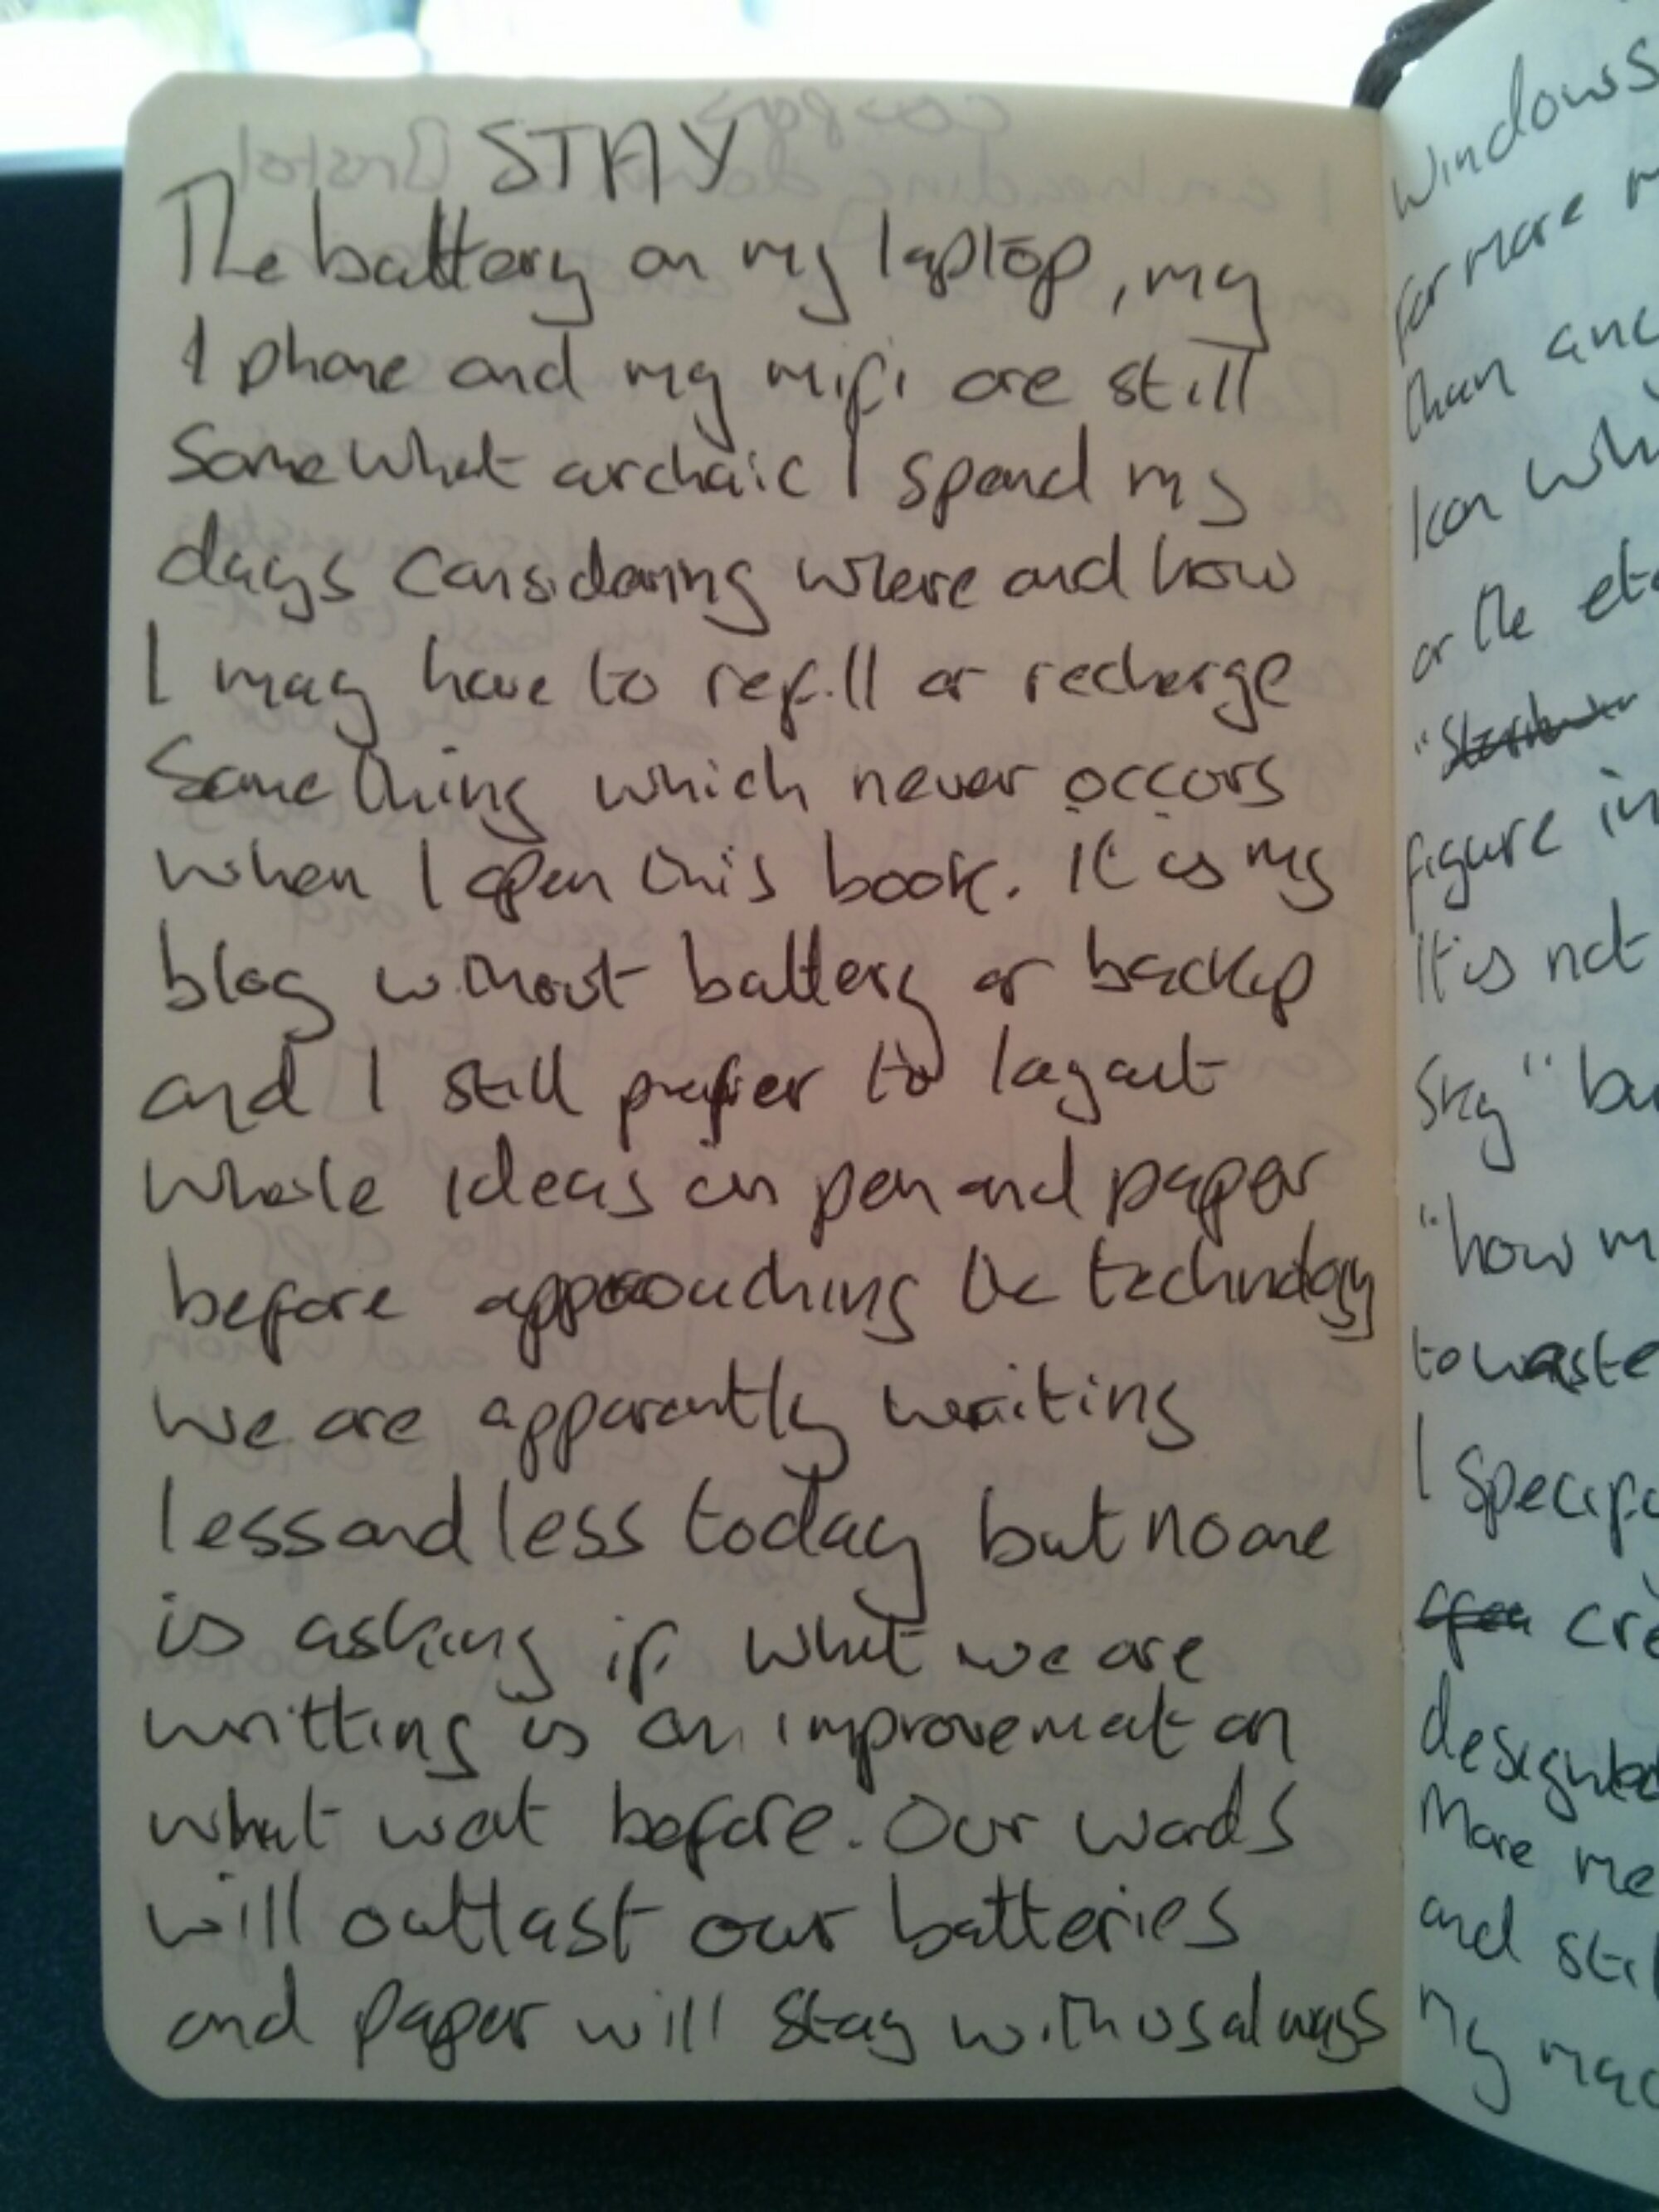 STAY
The battery on my laptop, my
I phone and my mifi are still
Somewhat archaic I spend my
days considering where and how
I may have to refill or recharge
Something which never occors
when I open this book. It is my
blog without battery or backup
and I still prefer to layout
whole ideas on pen and paper
before approaching the technology
we are apparently waiting
less and less today but no one
is asking if what we are
writting is an improvement on
what went before. Our words
will outlast our batteries
and paper will stay with us always
windows
for more
than
Icon
or the
figure in
It is not
Sky"
"how
to waste
I
designed
More me
and
my